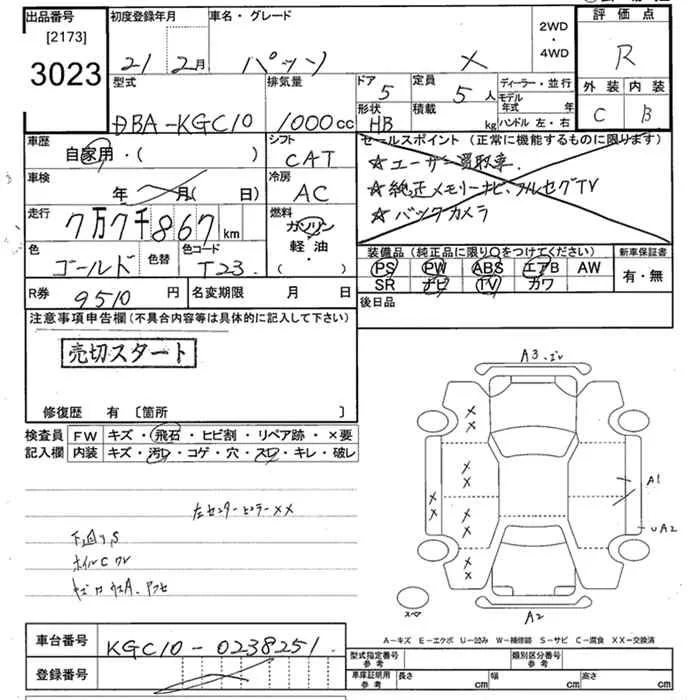 出品番号 初度登録年月 車名・グレード 2WD・4WD 評価点
[2173]
3023
21 2月 パッソ X R
型式 排気量 ドア 定員 ディーラー・並行 外装 内装
DBA-KGC10 1000cc 5 5人 モデル年式 年 C B
形状 HB 積載 kg ハンドル 左・右
車歴 シフト セールスポイント (正常に機能するものに限ります)
自家用・( ) CAT ☆ユーザー買取車.
車検 冷房 ☆純正メモリーナビ、フルセグTV
年 月( 日) AC ☆バックカメラ
走行 燃料
7万7千867km ガソリン
色 色替 色コード 軽油・ 装備品 (純正品に限り○をつけてください) 新車保証書
ゴールド T23. ( ) PS PW ABS エアB AW 有・無
SR ナビ TV カワ
R券 9510円 名変期限 月 日 後日品
注意事項申告欄(不具合内容等は具体的に記入して下さい)
売切スタート
修復歴 有 〔箇所 〕
検査員 FW キズ・飛石・ヒビ割・リペア跡・×要
記入欄 内装 キズ・汚レ・コゲ・穴・スレ・キレ・破レ
左センターピラーXX
下廻りS
ホイルC
A3
A1
UA2
A2
スペア
A-キズ E-エクボ U-凹み W-補修跡 S-サビ C-腐食 XX-交換済
車台番号 KGC10-0238251
登録番号
型式指定番号 参考 類別区分番号 参考
車庫証明用 参考 長さ cm 幅 cm 高さ cm